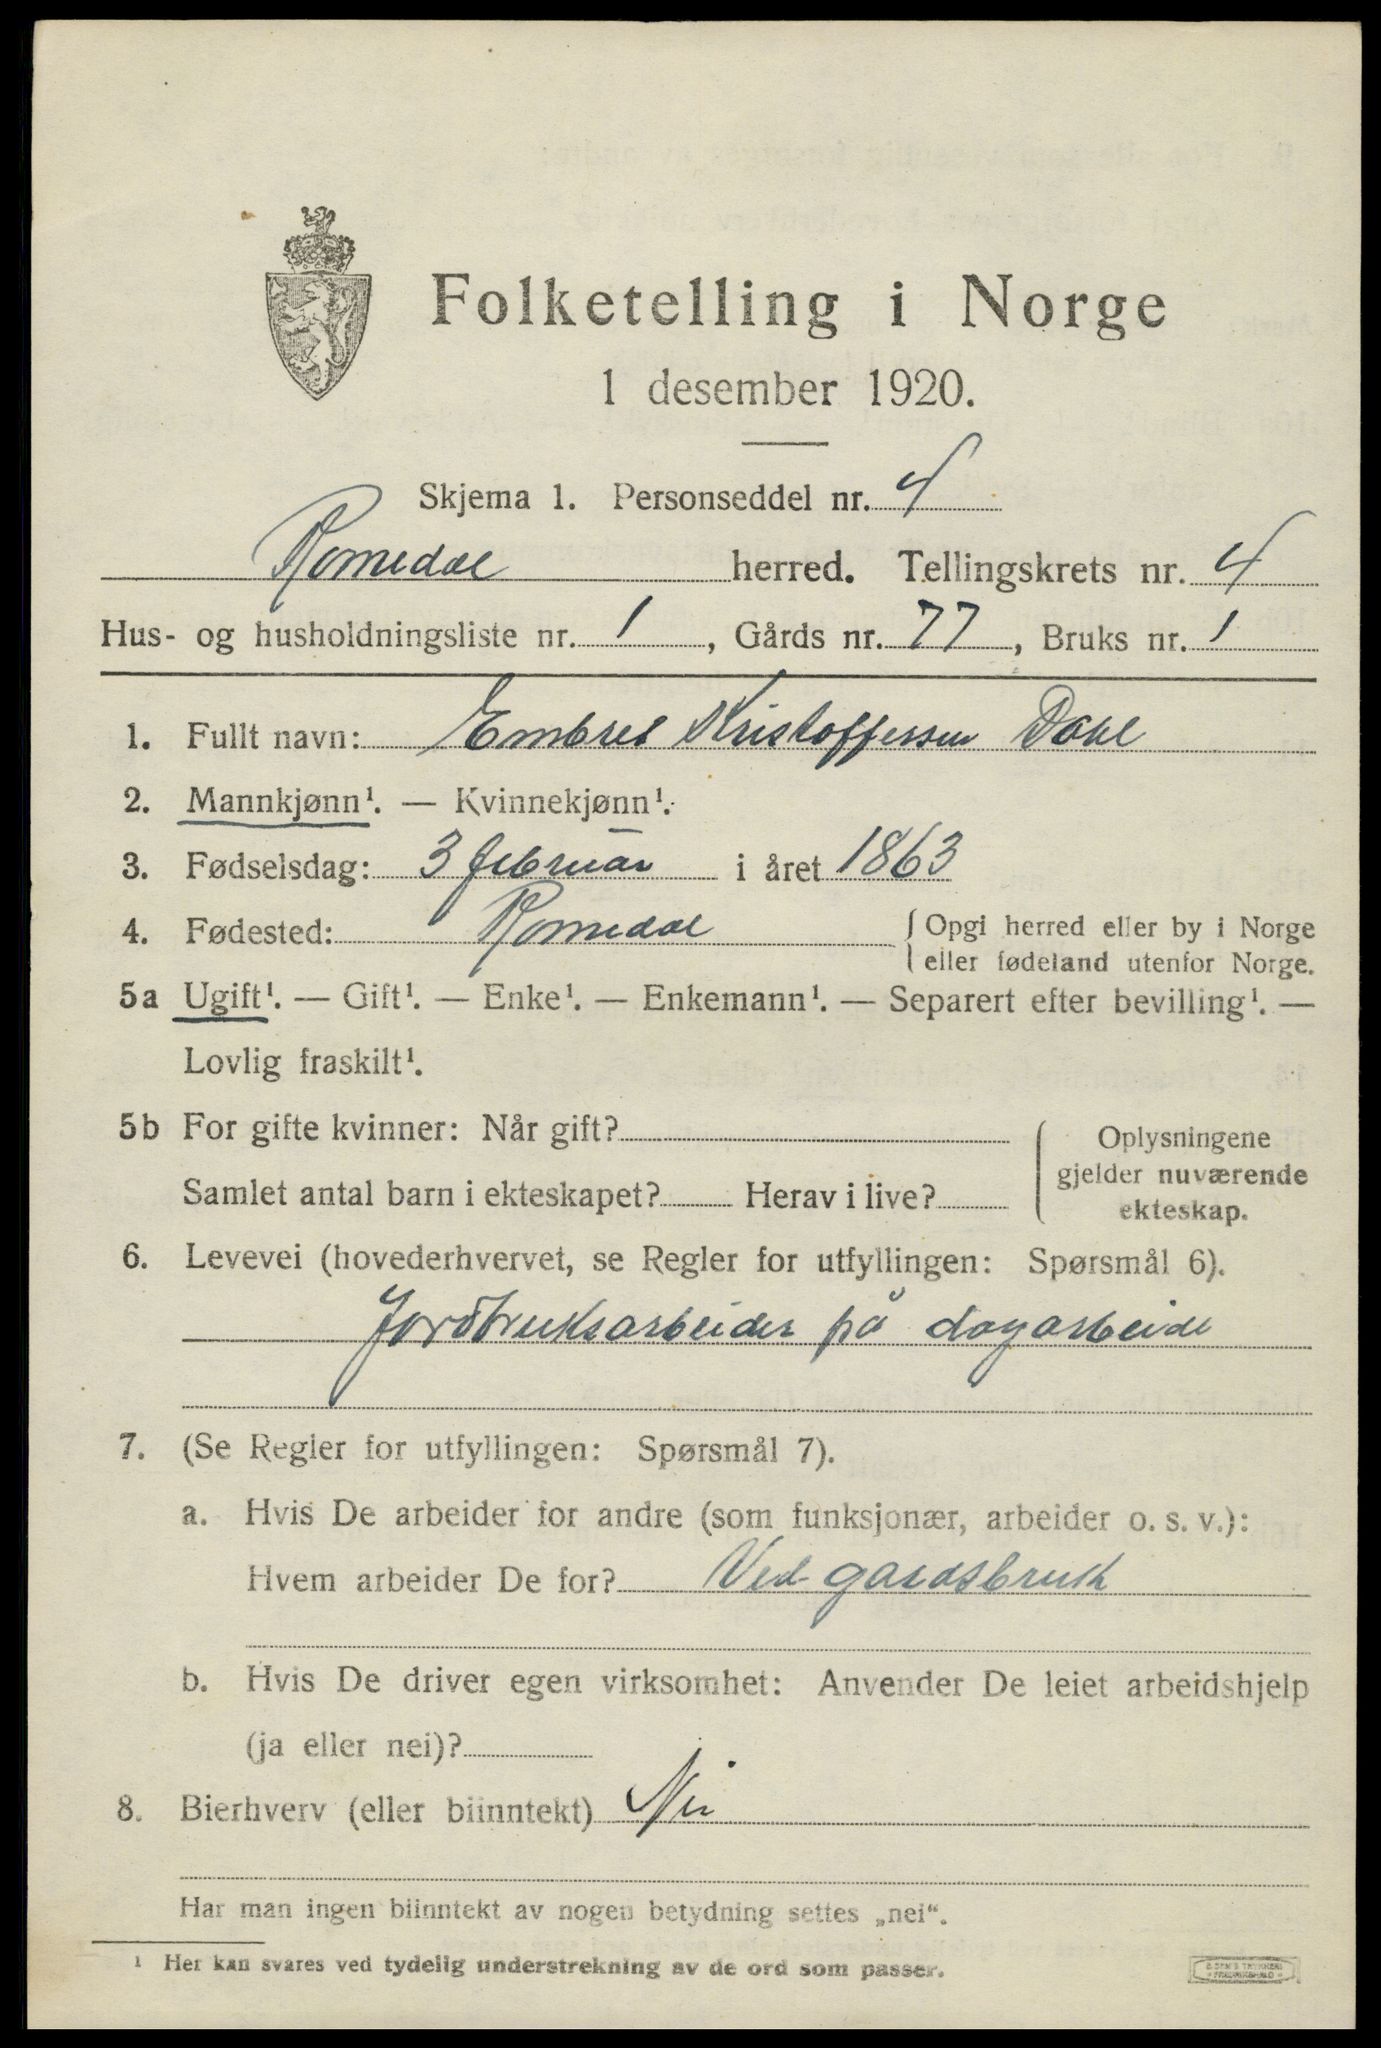 Folketelling i Norge
1 desember 1920.
Skjema 1. Personseddel nr. 4
Romedal herred. Tellingskrets nr. 4
Hus- og husholdningsliste nr. 1, Gårds nr. 77, Bruks nr. 1
1. Fullt navn: Embret Kristoffersen Dahl
2. Mannkjønn¹. — Kvinnekjønn¹.
3. Fødselsdag: 3 februar i året 1863
4. Fødested: Romedal { Opgi herred eller by i Norge
eller fødeland utenfor Norge.
5a Ugift¹. — Gift¹. — Enke¹. — Enkemann¹. — Separert efter bevilling¹. —
Lovlig fraskilt¹.
5b For gifte kvinner: Når gift?
Samlet antal barn i ekteskapet? Herav i live?
{ Oplysningene
gjelder nuværende
ekteskap.
6. Levevei (hovederhvervet, se Regler for utfyllingen: Spørsmål 6).
Jordbruksarbeider på dagarbeide
7. (Se Regler for utfyllingen: Spørsmål 7).
a. Hvis De arbeider for andre (som funksjonær, arbeider o. s. v.):
Hvem arbeider De for? Ved gardsbruk
b. Hvis De driver egen virksomhet: Anvender De leiet arbeidshjelp
(ja eller nei)?
8. Bierhverv (eller biinntekt) Nei
Har man ingen biinntekt av nogen betydning settes „nei“.
¹ Her kan svares ved tydelig understrekning av de ord som passer.